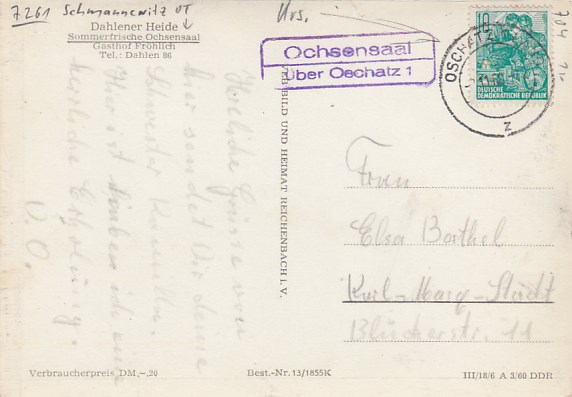 7261 Schmannewitz OT
Dahlener Heide
Sommerfrische Ochsensaal
Gasthof Fröhlich
Tel.: Dahlen 86
Ochsensaal
über Oschatz 1
OSCHATZ
z
10
DEUTSCHE
DEMOKRATISCHE REPUBLIK
VEB BILD UND HEIMAT REICHENBACH i. V.
Herzliche Grüsse von
hier sendet Dir deine
Schwester
Hier ist
Erholung.
Frau
Elsa Barthel
Karl-Marx-Stadt
Blücherstr. 11
Verbraucherpreis DM -,20
Best.-Nr. 13/1855K
III/18/6 A 3/60 DDR